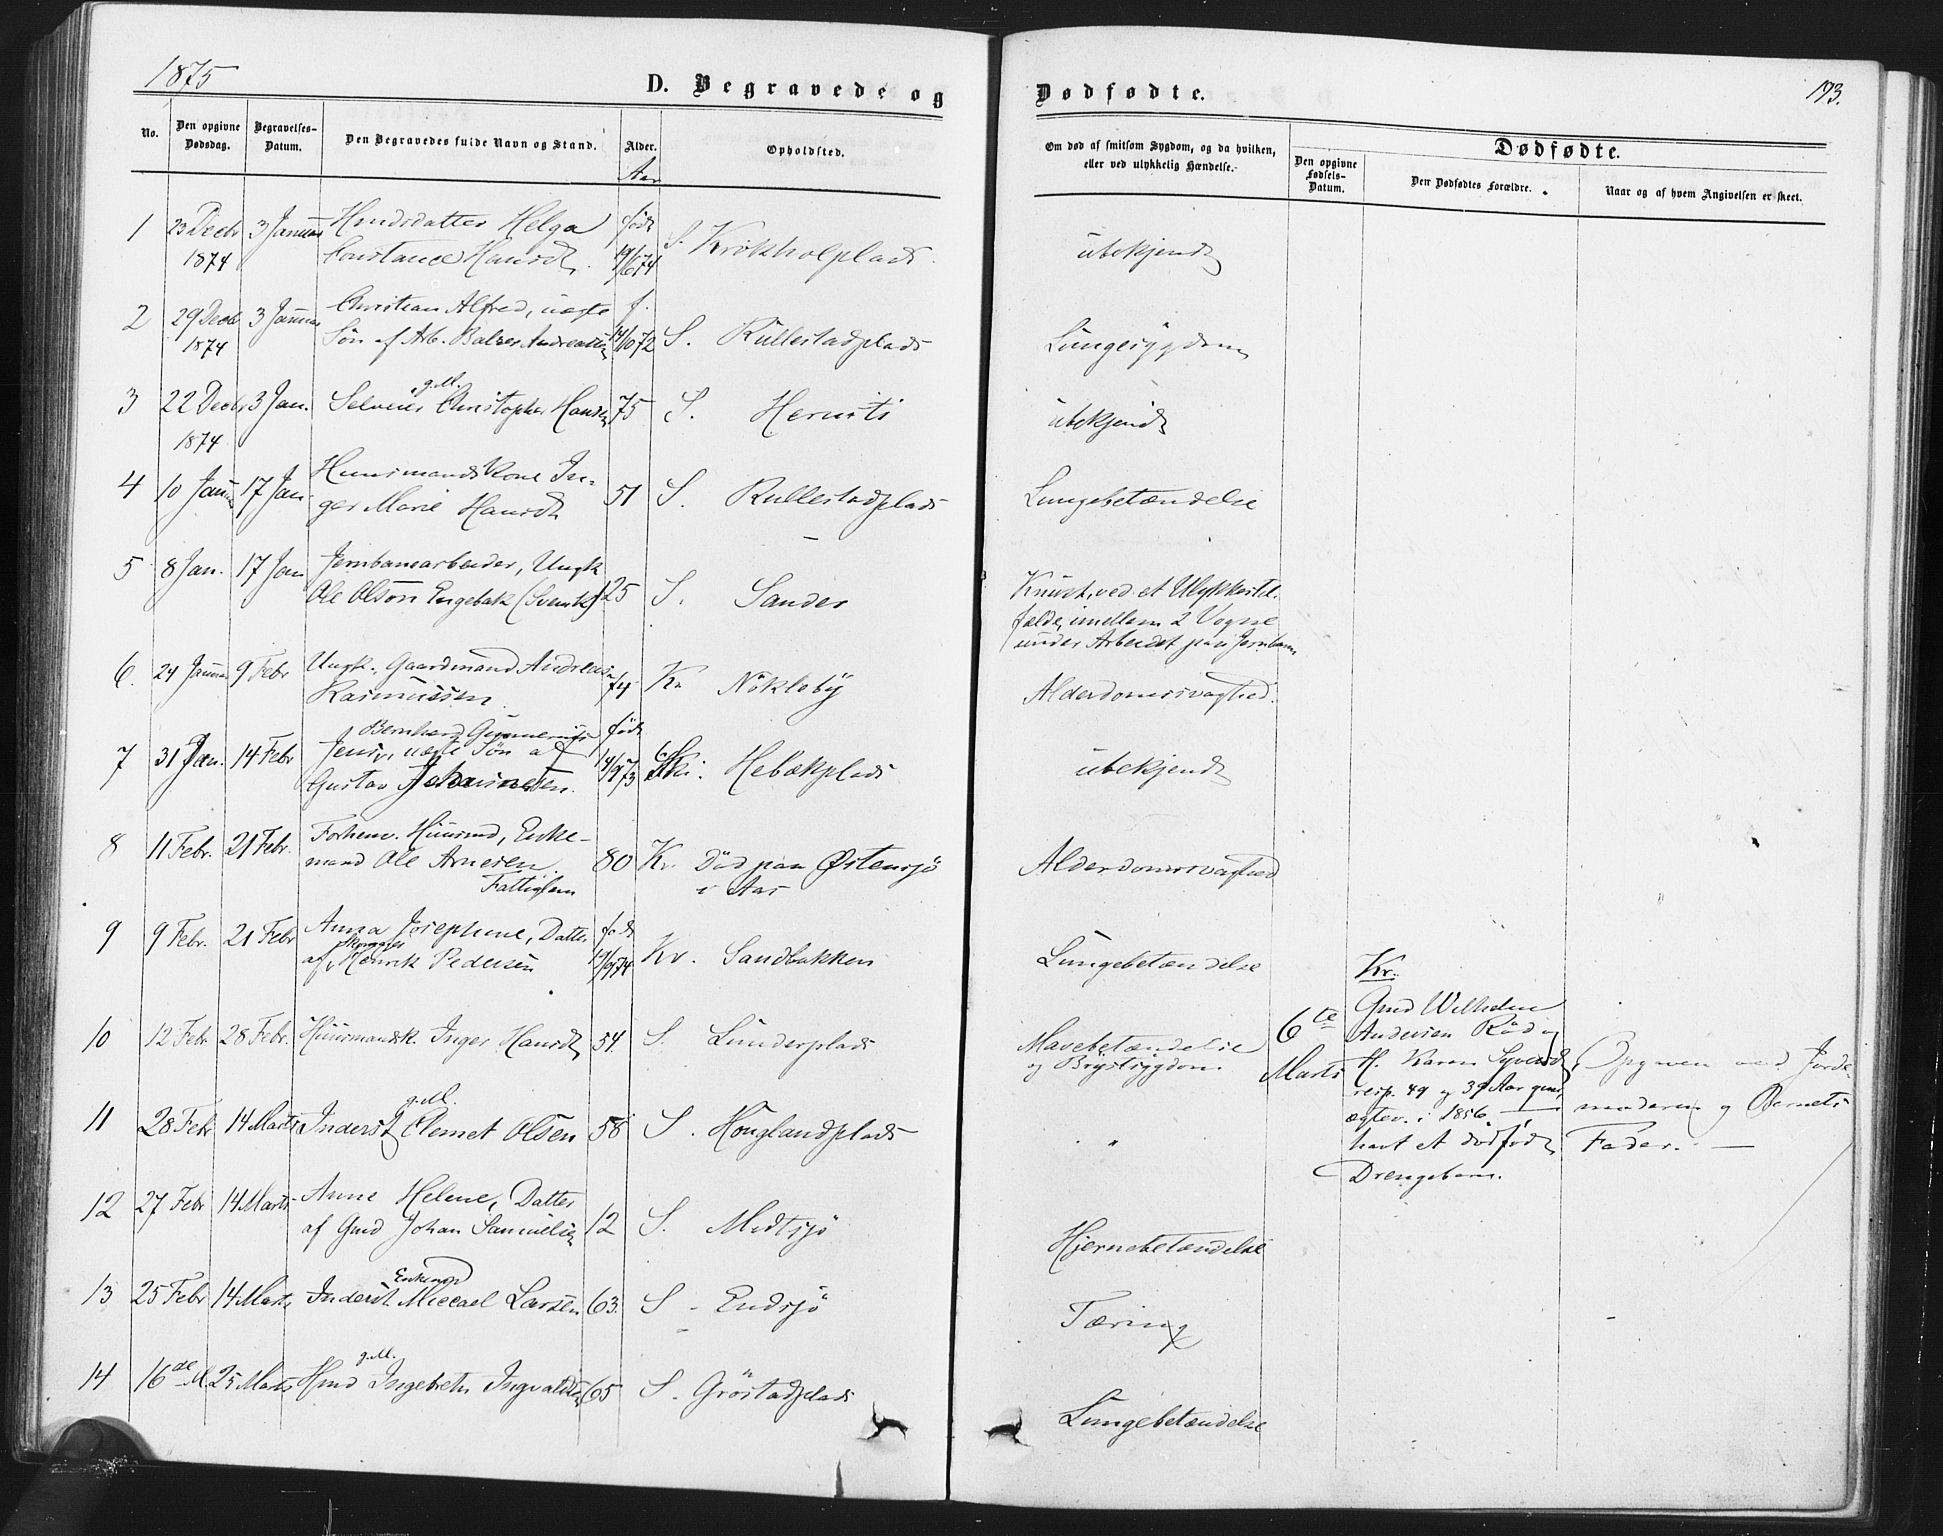 1875
D. Begravede og
Dødfødte.
173.
No.
Den opgivne Dødsdag.
Begravelses-Datum.
Den Begravedes fulde Navn og Stand.
Alder.
Aar
Opholdsted.
Om død af smitsom Sygdom, og da hvilken,
eller ved ulykkelig Hændelse.
Dødfødte.
Den opgivne Fødsels-Datum.
Den Dødfødtes Forældre.
Naar og af hvem Angivelsen er skeet.
1 23 Decbr 3 Januar Hmdsdatter Helga født S. Krokholplads ubekjendt
1874 Constance Hansdt. 19/6 74
2 29 Decb 3 Januar Christian Alfred, uægte f. S. Kullestadplads Lungesygdom
1874 Søn af Arb. Balzer Andreasen 14/10 72
g.M.
3 22 Decbr 3 Jan. Selveier Christopher Hansen 75 S. ubekjendt
1874
4 10 Januar 17 Jan Huusmandskone In- 51 S. Kullestadplads Lungebetændelse
ger Marie Hansdt
5 8 Jan. 17 Jan Jernbanearbeider, Ungk 25 S. Sander Knust, ved et Ulykkestil-
Ole Olson Engebak (Svensk) fælde, imellem 2 Vogne
under Arbeidet paa Jernbanen
6. 24 Januar 9 Febr Ungk. Gaardmand Andreas 74 Kr Nökleby Alderdomssvaghed.
Rasmussen.
Bernhard Gunnerius født
7 31 Jan. 14 Febr Jens, uægte Søn af 14/9 73 Ski. Hebækplads ubekjendt
Gustav Johannesen.
8 11 Febr. 21 Febr. Forhenv. Huusmd, Enke- 80 Kr. Død paa Østensjø Alderdomssvaghed
mand Ole Arnesen. i Aas
Fattiglem
9 9 Febr. 21 Febr Anna Josephine, Datter født Kr. Sandbakken Lungebetændelse
af Henrik Pedersen 17/9 74
10 12 Febr 28 Febr. Huusmandsk. Inger Hansdt 54. S. Lunderplads Mavebetændelse
og Brystsygdom.
g.M.
11 28 Febr 14 Marts Inderst Clemet Olsen 58 S. Houglandplads "
12 27 Febr 14 Marts Anne Helene, Datter 12 S. Midtsjø Hjernebetændelse
af Gmd Johan Samuelsen
Enkemd
13 25 Febr 14 Marts Inderst Miccael Larsen 63. S. Endsjø Tæring
g.M.
14 16de M. 25 Marts Hmd Ingebreth Ingvaldsen 65 S. Gröstadplads Lungebetændelse
6te Marts
Kr.
Gmd Wilhelm
Andersen Röd og
H. Karen Syversdt,
resp. 49 og 39 Aar gml,
ægtev. i 1856
havt et dødfødt
Drengebarn.
Opgiven ved Jorde-
moderen og Barnets
Fader.